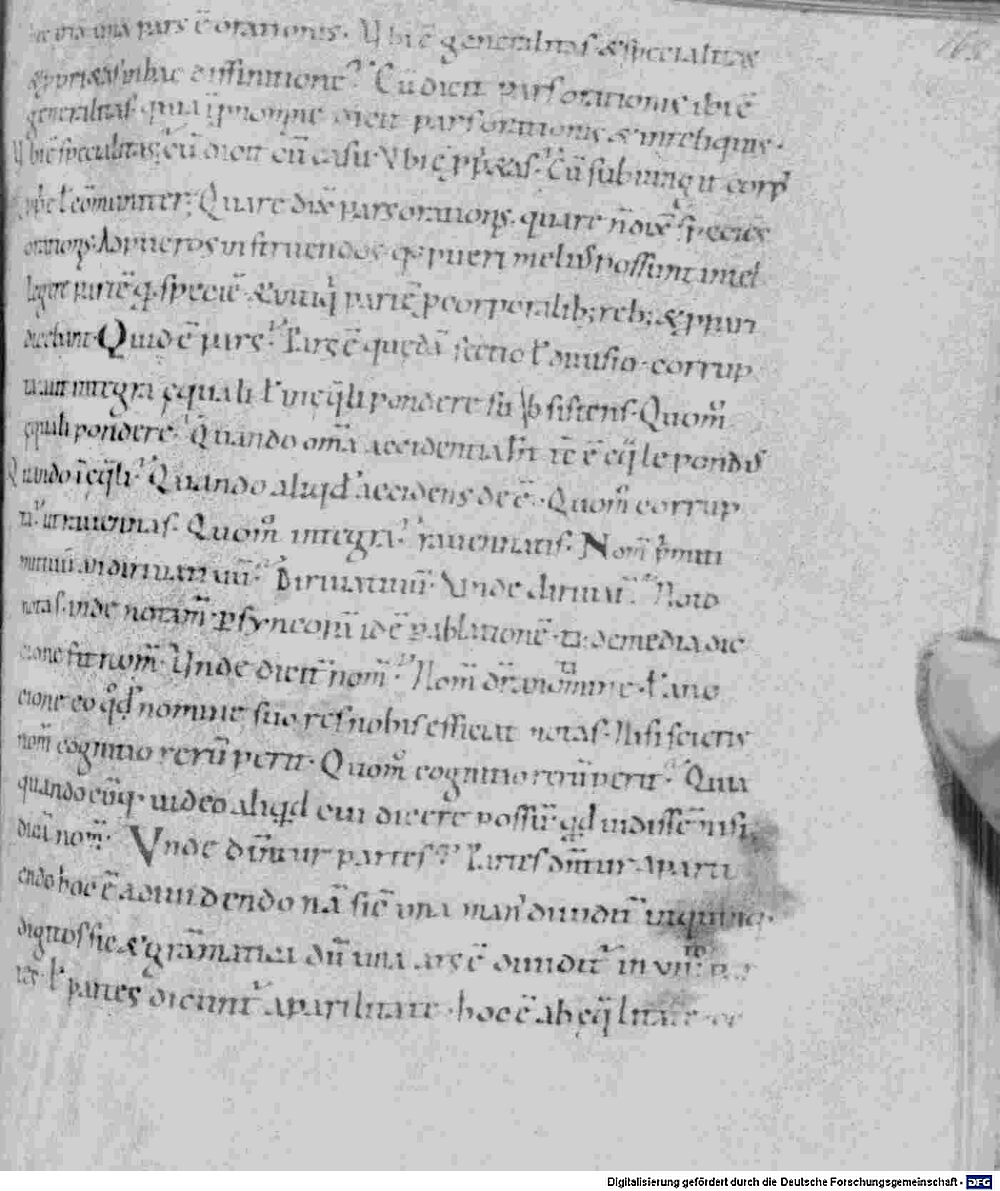 una pars ē orationis. Ubi ē generalitas & specialitas
& pprietas in hac diffinitione? Cū dicit pars orationis ibi ē
generalitas. quia dicit pars orationis & in reliquis.
Ubi ē specialitas; cū dicit cū casu. Ubi ę pprietas? Cū subiungit corp
ł cōmuniter; Quare dix pars orationis. quare n̄ dix̄ species
orationis. Ad pueros instruendos qa pueri melius possunt intel
legere partē qa speciē. & utuntur partē p corporalib; reb; &
dicebant. Quid ē pars? Pars ē quędā sectio ł diuisio. corrup
ta aut integra ęquali ł inęq̄li pondere subsistens. Quom̊
ęquali pondere? Quando om̄a accidentia ē ęq̄le pondus
Quando inęq̄li? Quando aliqd accidens deē. Quom̊ corrup
ta? ut rauennas. Quom̊ integra? rauennatis. Nom̄ primi
tiuū an diriuatiuū? Diriuatiuū. Unde diriuat̄? Noto
notas. inde notam̄. p syncopā id ē p ablationē. ta. de media dic
cione fit nom̄. Unde dicit̄ nom̄? Nom̄ dr̄ a notamine. ł a no
cione eo qd nomine suo res nobis efficiat notas. Nisi scieris
nom̄ cognitio rerū perit. Quom̊ cognitio rerū perit? Quia
quandocūq. uideo aliqd cui dicere possū qd uidissē nisi
dicā nom̄. Unde dicunt̄ partes? Partes dicunt̄ a parti
endo hoc ē a diuidendo nā sic̄ una man' diuidit̄ in quinq.
digitos sic & grāmatica dū una ars ē diuidit̄ in VIII par
tes. ł partes dicunt̄ a parilitate. hoc ē ab ęq̄litate
Digitalisierung gefördert durch die Deutsche Forschungsgemeinschaft - DFG